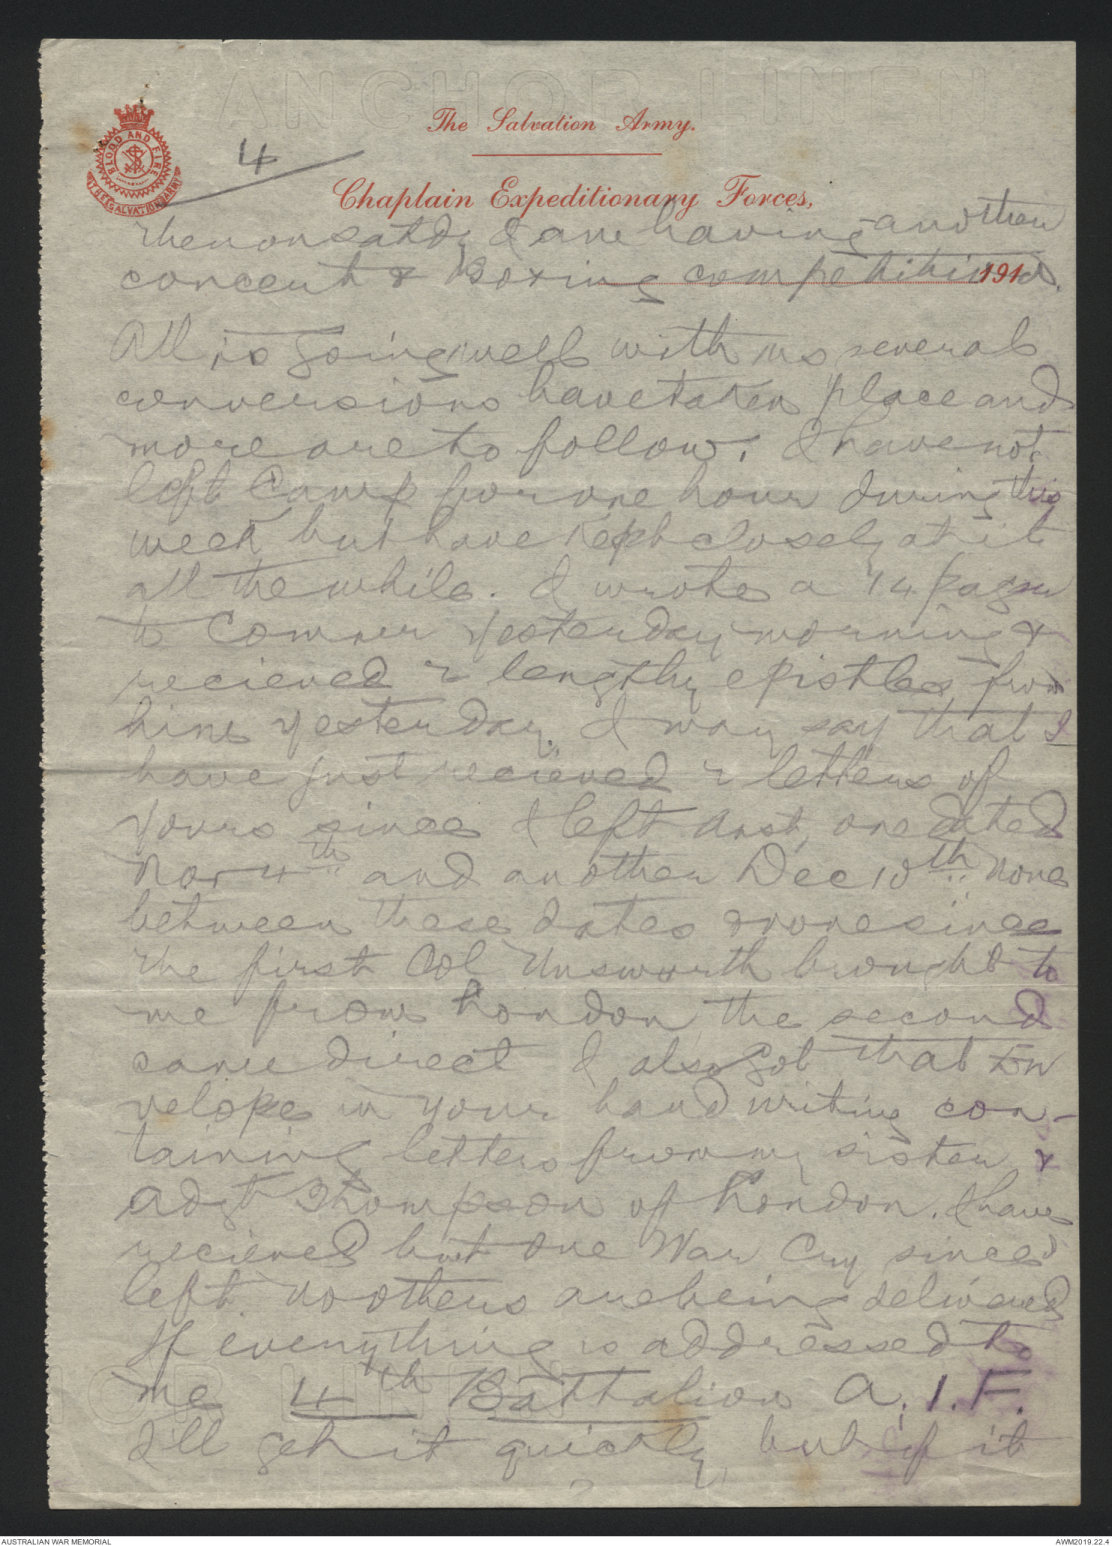 ANCHOR LINEN
The Salvation Army.
BLOOD AND FIRE
THE SALVATION ARMY
4
Chaplain Expeditionary Forces,
then on Satdy I am having another
concert & Boxing competition
191
All is going well with us several
conversions have taken place and
more are to follow. I have not
left Camp for one hour during this
week but have kept closely at it
all the while. I wrote a 14 pager
to Commr yesterday morning &
recieved 2 lengthy epistles from
him yesterday. I may say that I
have just recieved 2 letters of
yours since I left Aust, one dated
Nov 4th and another Dec 10th none
between these dates & none since
the first Col Unsworth brought to
me from London the second
came direct I also got that En
velope in your handwriting con-
taining letters from my sister &
Adjt Thompson of London. I have
recieved but one War Cry since I
left. No others are being delivered
If everything is addressed to
me 4th Battalion A.I.F.
I'll get it quickly, but if it
HOR LINEN
AUSTRALIAN WAR MEMORIAL
AWM2019.22.4